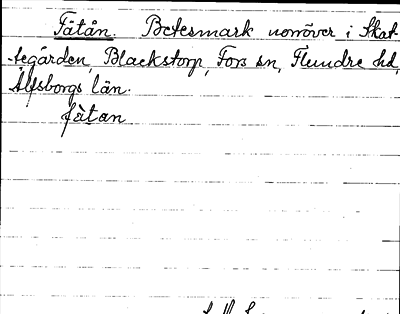 Fåtån. Betesmark norröver i Skat-
-tegården, Blackstorp, Fors sn, Flundre hd,
Älfsborgs län.
fåtan